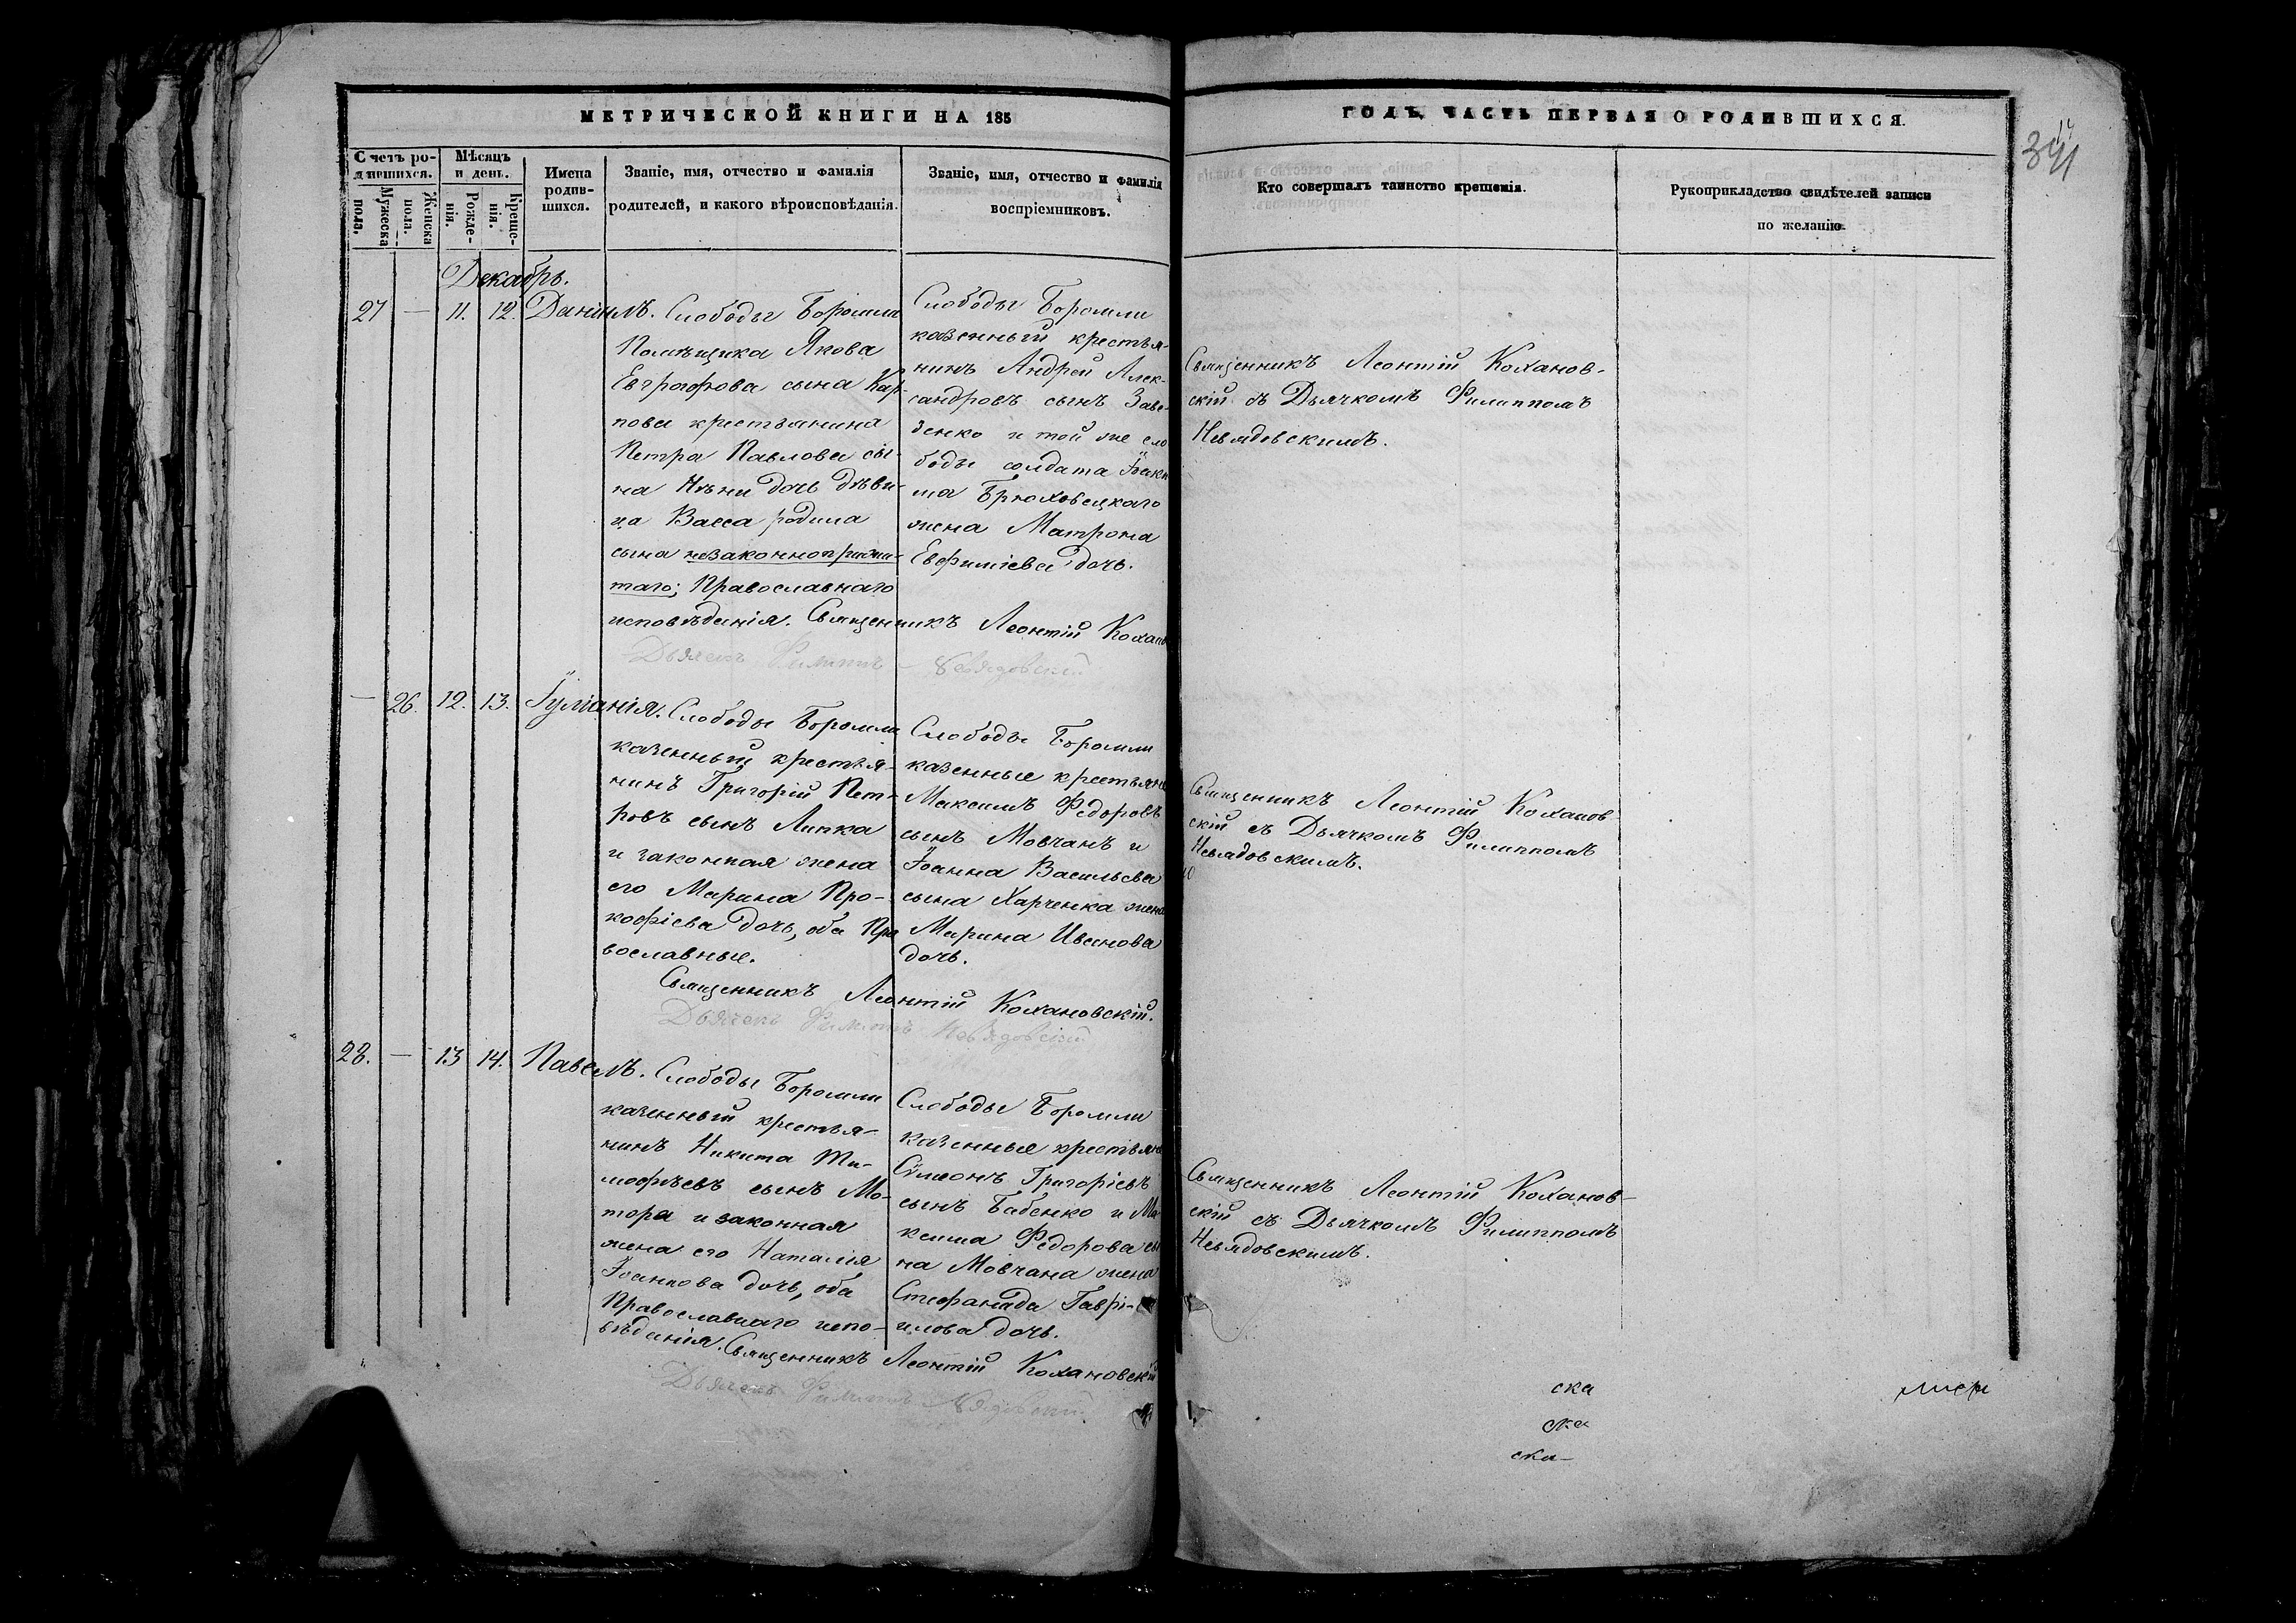 МЕТРИЧЕСКОЙ КНИГИ НА 185
ГОДЪ, ЧАСТЬ ПЕРВАЯ О РОДИВШИХСЯ.
Счетъ ро-
дившихся.
Мужеска
пола.
Женска
пола.
Мѣсяцъ
и день.
Рожде-
нія.
Креще-
нія.
Имена
родив-
шихся.
Званіе, имя, отчество и фамилія
родителей, и какого вѣроисповѣданія.
Званіе, имя, отчество и фамилія
воспріемниковъ.
Кто совершалъ таинство крещенія.
Рукоприкладство свидѣтелей записи
по желанію.
Декабрь.
27 — 11. 12. Даніилъ.
Слободы Боромли
Помѣщика Якова
Евграфова сына Кар-
пова крестьянина
Петра Павлова сы-
на дочь дѣви-
ца Васса родила
сына незаконноприжи-
таго; Православнаго
исповѣданія. Священникъ Леонтій Кохано
Дьячекъ Филиппъ Невядовскій
Слободы Боромли
казенный крестья-
нинъ Андрей Алек-
сандровъ сынъ
и той же сло
боды солдата Іоаки
ма Брюховецкаго
жена Матрона
Евфиміева дочь.
Священникъ Леонтій Коханов-
скій съ Дьячкомъ Филиппомъ
Невядовскимъ.
— 26. 12. 13. Іуліанія.
Слободы Боромли
казенный крестья-
нинъ Григорій Пет-
ровъ сынъ Липка
и законная жена
его Марина Про-
кофіева дочь, оба Пра
вославные.
Священникъ Леонтій Кохановскій.
Дьячекъ Филиппъ Невядовскій
Слободы Боромли
казенные крестьяне
Максимъ Федоровъ
сынъ Мовчанъ и
Іоанна Васильева
сына Харченка жена
Марина Иванова
дочь.
Священникъ Леонтій Коханов
скій съ Дьячкомъ Филиппомъ
Невядовскимъ.
28. — 13 14. Павелъ.
Слободы Боромли
казенный крестья-
нинъ Никита Ти-
мофѣевъ сынъ Мо-
тора и законная
жена его Наталія
Іоаннова дочь, оба
Православнаго испо-
вѣданія. Священникъ Леонтій Кохановскій
Дьячекъ Филиппъ Невядовскій
Слободы Боромли
казенные крестьяне
Сѵмеонъ Григорьевъ
сынъ Бабенко и Ма-
ксима Федорова сы
на Мовчана жена
Стефанида Гаврі-
илова дочь.
Священникъ Леонтій Коханов-
скій съ Дьячкомъ Филиппомъ
Невядовскимъ.
ска
ска
ска-